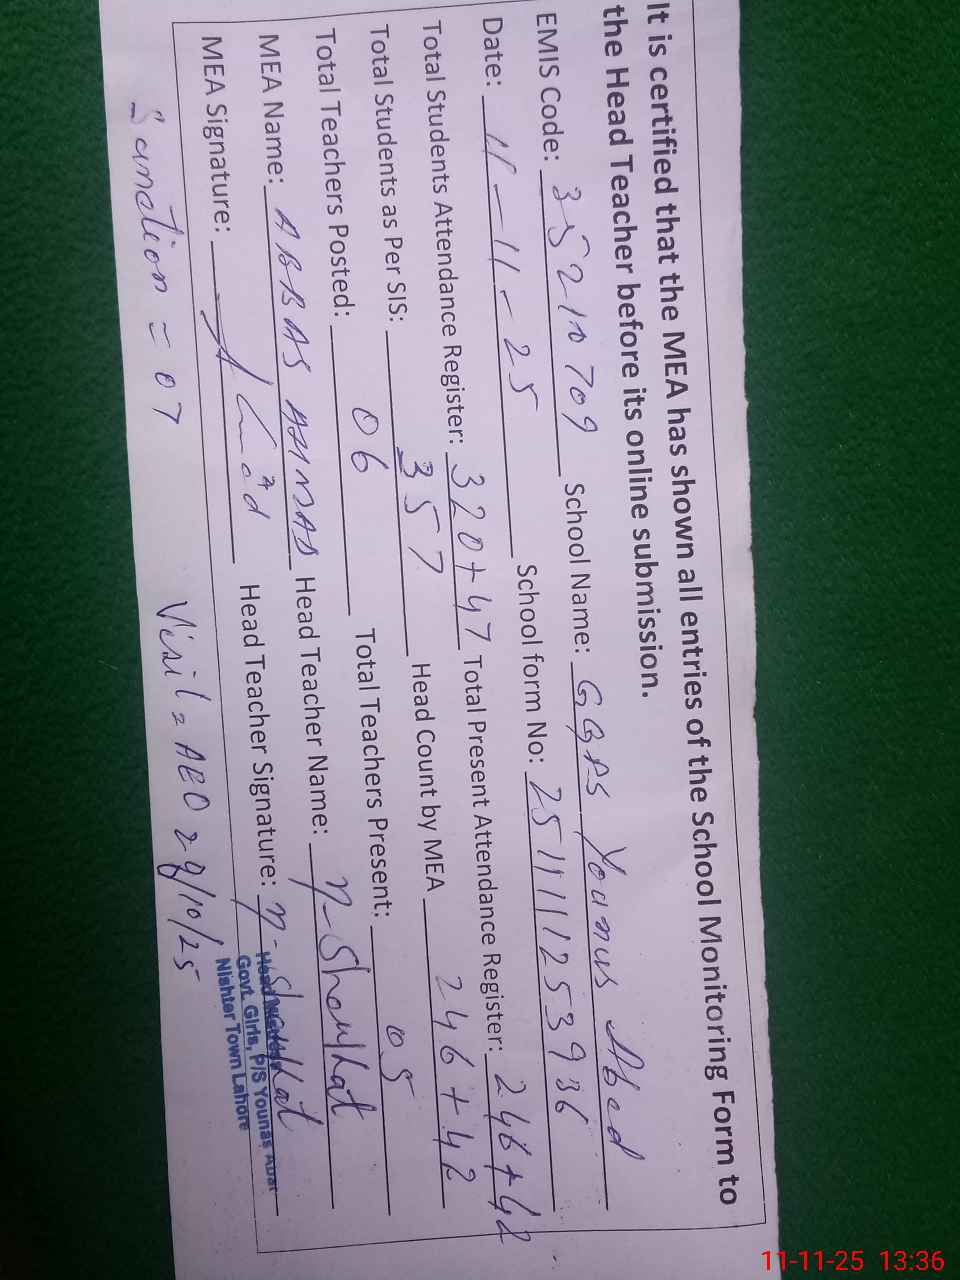 It is certified that the MEA has shown all entries of the School Monitoring Form to
the Head Teacher before its online submission.
EMIS Code: 35210709 School Name: GGPS Younus Abad
Date: 11-11-25 School form No: 2511111253936
Total Students Attendance Register: 320+47 Total Present Attendance Register: 246+42
Total Students as Per SIS: 357 Head Count by MEA 246+42
Total Teachers Posted: 06 Total Teachers Present: 05
MEA Name: ABBAS AHMAD Head Teacher Name: N-Shoukat
MEA Signature: Head Teacher Signature: N-Shoukat
Head Mistress
Govt. Girls, P/S Younas Abad
Nishter Town Lahore
Sanction = 07 Visit = AEO 29/10/25
11-11-25 13:36